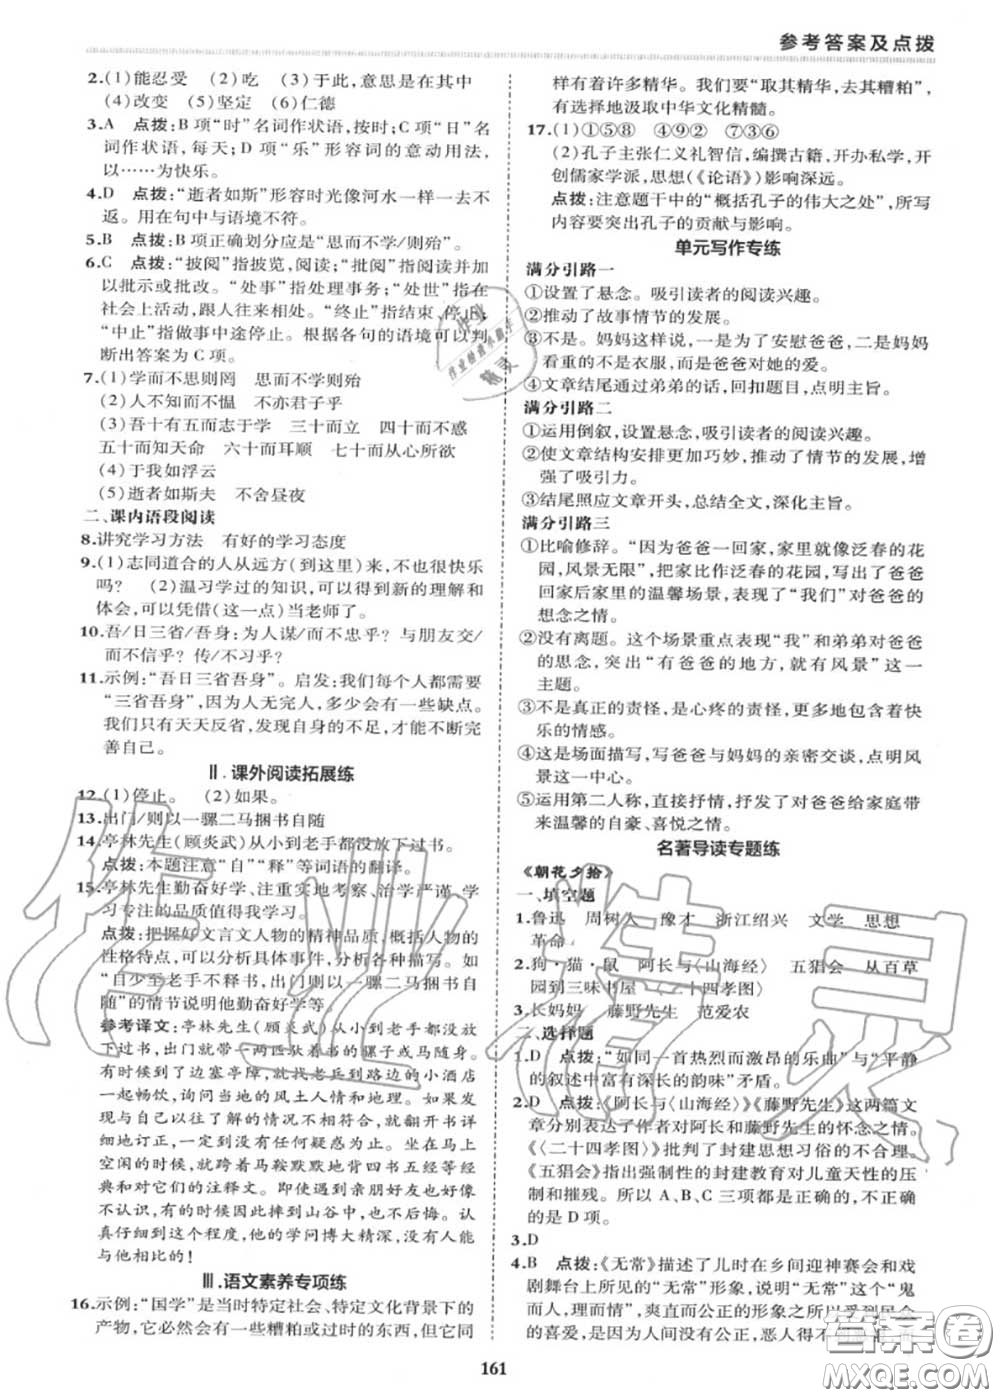 参考答案及点拨
2.(1)能忍受　(2)吃　(3)于此,意思是在其中
(4)改变　(5)坚定　(6)仁德
3.A　点拨:B项“时”名词作状语,按时;C项“日”名
词作状语,每天;D项“乐”形容词的意动用法,
以……为快乐。
4.D　点拨:“逝者如斯”形容时光像河水一样一去不
返。用在句中与语境不符。
5.B　点拨:B项正确划分应是“思而不学/则殆”。
6.C　点拨:“披阅”指披览,阅读;“批阅”指阅读并
加以批示或批改。“处事”指处理事务;“处世”指在
社会上活动,跟人往来相处。“终止”指结束,停止;
“中止”指做事中途停止。根据各句的语境可以判
断出答案为C项。
7.(1)学而不思则罔　思而不学则殆
(2)人不知而不愠　不亦君子乎
(3)吾十有五而志于学　三十而立　四十而不惑
五十而知天命　六十而耳顺　七十而从心所欲
(4)于我如浮云
(5)逝者如斯夫　不舍昼夜
二、课内语段阅读
8.讲究学习方法　有好的学习态度
9.(1)志同道合的人从远方(到这里)来,不也很快乐
吗?　(2)温习学过的知识,可以得到新的理解和
体会,可以凭借(这一点)当老师了。
10.吾/日三省/吾身:为人谋/而不忠乎?与朋友交/
而不信乎?传/不习乎?
11.示例:“吾日三省吾身”。启发:我们每个人都需要
“三省吾身”,因为人无完人,多少会有一些缺点。
我们只有天天反省,发现自身的不足,才能不断完
善自己。
Ⅱ.课外阅读拓展练
12.(1)停止。　(2)如果。
13.出门/则以一骡二马捆书自随
14.亭林先生(顾炎武)从小到老手都没放下过书。
点拨:本题注意“自”“释”等词语的翻译。
15.亭林先生勤奋好学、注重实地考察,治学严谨,学
习专注的品质值得我学习。
点拨:把握好文言文人物的精神品质,概括人物的
性格特点,可以分析具体事件,分析各种描写。如
“自少至老手不释书,出门则以一骡二马捆书自
随”的情节说明他勤奋好学等。
参考译文:亭林先生(顾炎武)从小到老手都没放
下过书,出门就带一两匹驮着书的骡子或马随身。
有时候到了边塞亭障,就找老兵到路边的小酒店
一起畅饮,询问当地的风土人情和地理。如果发
现与以往了解的情况不相符合,就翻开书本详
细地订正,一定到没有任何疑惑为止。在马上
空闲的时候,就跨着马鞍默默地背四书五经等经
典和对它们的注释文。即使遇到亲朋好友也好像
不认识,有时掉到山谷中,也不后悔。认
真仔细到这种程度,他的学问博大精深,没有人能
与他相比的!
Ⅲ.语文素养专项练
16.示例:“国学”是当时特定社会、特定文化背景下的
产物,它必然会有一些糟粕或过时的东西,但它同
样有着许多精华。我们要“取其精华,去其糟粕”,
有选择地汲取中华文化精髓。
17.(1)①⑤⑧　④⑨②　⑦③⑥
(2)孔子主张仁义礼智信,编撰古籍,开办私学,开
创儒家学派,思想(《论语》)影响深远。
点拨:注意题干中的“概括孔子的伟大之处”,写作
内容要突出孔子的贡献与影响。
单元写作专练
满分引路一
①设置了悬念。吸引读者的阅读兴趣。
②推动了故事情节的发展。
③不是。妈妈这样说,一是为了安慰爸爸,二是妈妈
看重的不是衣服,而是爸爸对她的爱。
④文章结尾通过弟弟的话,回扣题目,点明主旨。
满分引路二
①运用倒叙,设置悬念,吸引读者的阅读兴趣。
②使文章结构安排更加巧妙,推动了情节的发展,增
强了吸引力。
③结尾照应文章开头,总结全文,深化主旨。
满分引路三
①比喻修辞。“因为爸爸一回家,家里就像泛春的花
园,风景无限”,把家比作泛春的花园,写出了爸爸
回家后家里的温馨场景,表现了“我们”对爸爸的
想念之情。
②没有离题。这个场景重点表现“我”和弟弟对爸爸
的思念,突出“有爸爸的地方,就有风景”这一
主题。
③不是真正的责怪,是心疼的责怪,更多地包含着快
乐的情感。
④这是场面描写,写爸爸与妈妈的亲密交谈,点明风
景这一中心。
⑤运用第二人称,直接抒情,抒发了对爸爸给家庭带
来温馨的自豪、喜悦之情。
名著导读专题练
《朝花夕拾》
一、填空题
1.鲁迅　周树人　豫才　浙江绍兴　文学　思想
革命
2.狗·猫·鼠　阿长与《山海经》　五猖会　从百草
园到三味书屋　《二十四孝图》
3.长妈妈　藤野先生　范爱农
二、选择题
1.D　点拨:“如同一首热烈而激昂的乐曲”与“平静
的叙述中富有深长的韵味”矛盾。
2.D　点拨:《阿长与〈山海经〉》《藤野先生》这两篇文
章分别表达了作者对阿长和藤野先生的怀念之情。
《〈二十四孝图〉》批判了封建思想习俗的不合理。
《五猖会》指出强制性的封建教育对儿童天性的压
制和摧残。所以A、B、C三项都是正确的,不正确的
是D项。
3.D
4.B　点拨:《无常》描述了儿时在乡间迎神赛会和戏
剧舞台上所见的“无常”形象,说明“无常”这个“鬼
而人,理而情”,爽直而公正的形象之所以受到民众
的喜爱,是因为人间没有公正,恶人得不到
161
作业精灵
答案圈
MXQE.COM